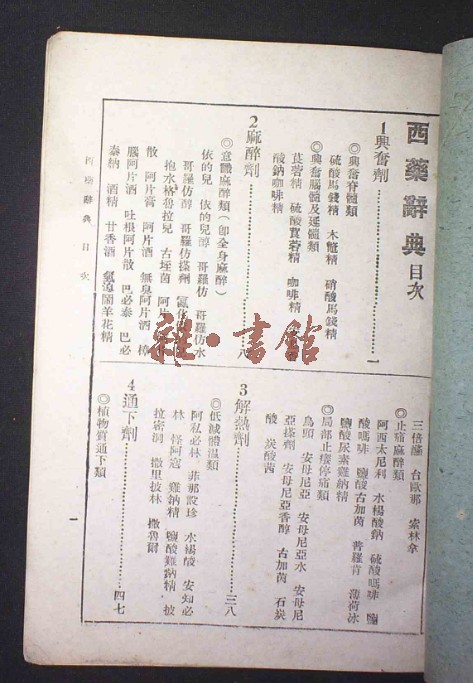 西藥辭典目次
1 興奮劑……一
◎興奮脊髓類
硫酸馬錢精 木鼈精 硝酸馬錢精
◎興奮腦髓及延髓類
莨菪精 硫酸莨菪精 咖啡精
酸鈉咖啡精
2 麻醉劑……八
◎意識麻醉類(即全身麻醉)
依的兒 依的兒醇 哥羅仿 哥羅仿水
哥羅仿醇 哥羅仿搽劑
抱水格魯拉兒 古埕茵 阿片
散 阿片膏 阿片酒 無臭阿片酒 樟
腦阿片酒 吐根阿片散 巴必泰 巴必
泰鈉 酒精 甘香酒 鬧羊花精
三倍 台 那 索林拿
◎止痛麻醉類
阿西太尼利 水楊酸鈉 硫酸嗎啡 鹽
酸嗎啡 鹽酸古加茵 普羅肯 薄荷冰
鹽酸尿素雞鈉精
◎局部止癢停痛類
烏頭 安母尼亞 安母尼亞水 安母尼
亞搽劑 安母尼亞香醇 古加茵 石炭
酸 炭酸茜
3 解熱劑……三八
◎低減體溫類
阿私必林 非那設珍 水楊酸 安知必
林 怪阿寇 雞鈉精 鹽酸雞鈉精 披
拉密洞 撒里披林 撒魯爾
4 通下劑……四七
◎植物質通下類
西藥辭典 目次
一
雜·書館